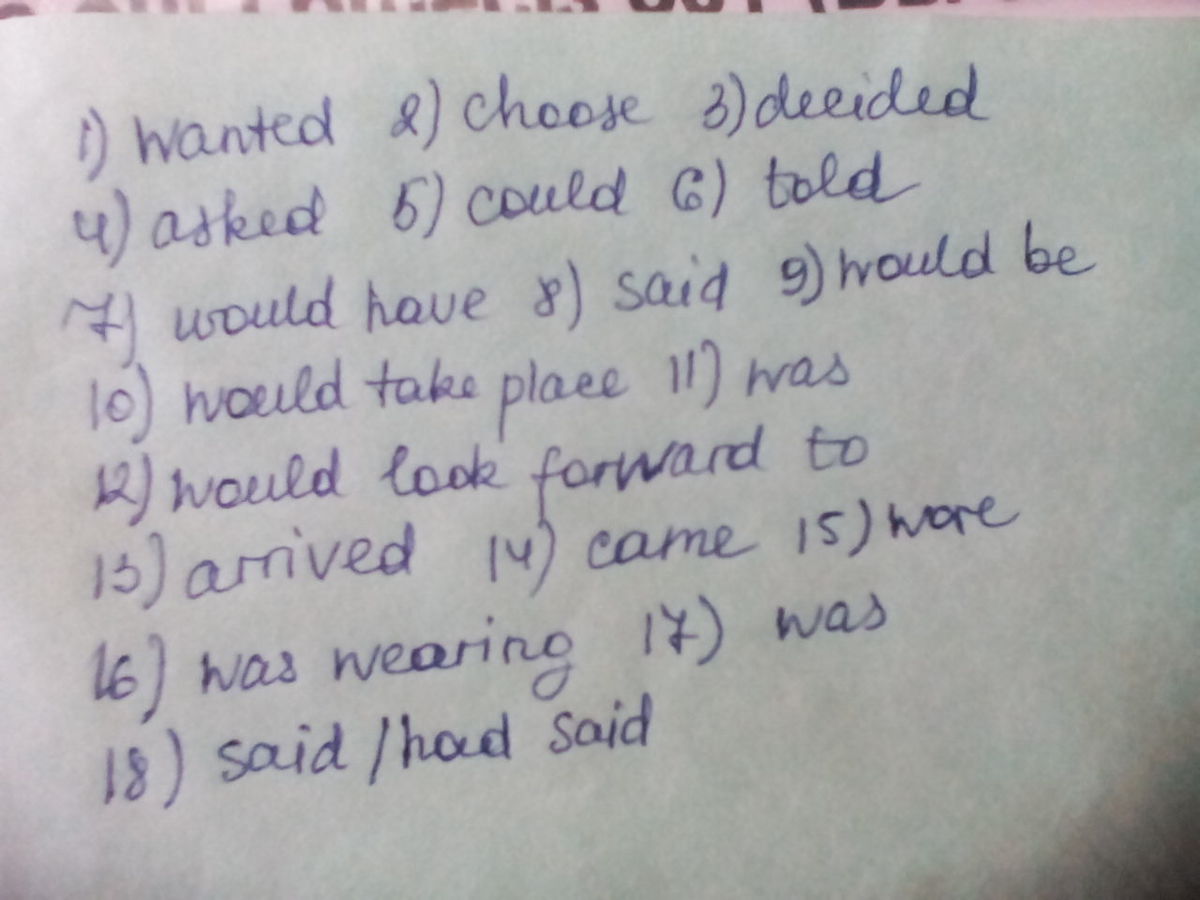 1) wanted 2) choose 3) decided
4) asked 5) could 6) told
7) would have 8) said 9) would be
10) would take place 11) was
12) would look forward to
13) arrived 14) came 15) wore
16) was wearing 17) was
18) said / had said